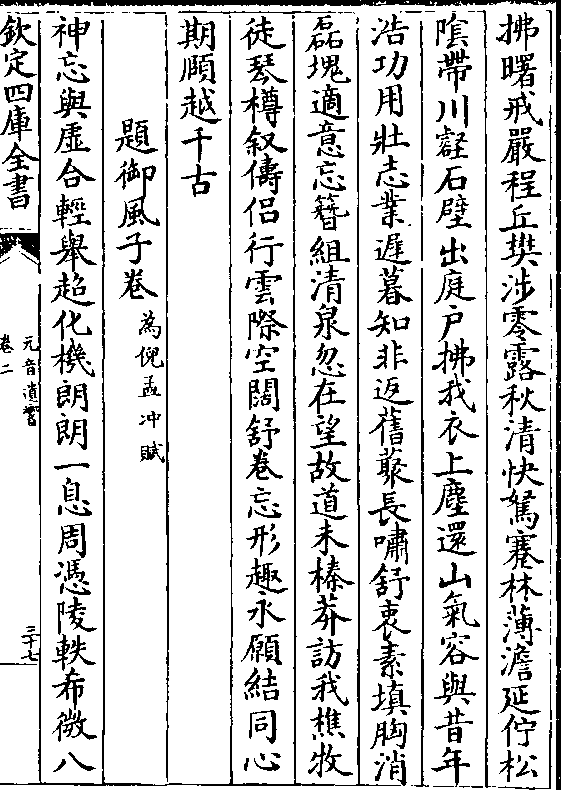 拂曙戒嚴程丘樊涉零露秋清快駑蹇林薄澹延佇松
陰帶川壑石壁出庭戶拂我衣上塵還山氣容與昔年
浩功用壯志業遲暮知非返舊藂長嘯舒衷素填胸消
磊塊適意忘簪組清泉忽在望故道未榛莽訪我樵牧
徒琴樽叙儔侣行雲際空闊舒卷忘形趣永願結同心
期願越千古
題御風子卷為倪孟冲賦
神忘與虛合輕舉超化機朗朗一息周憑陵軼希微八
欽定四庫全書
元音遺響
卷二
三十七